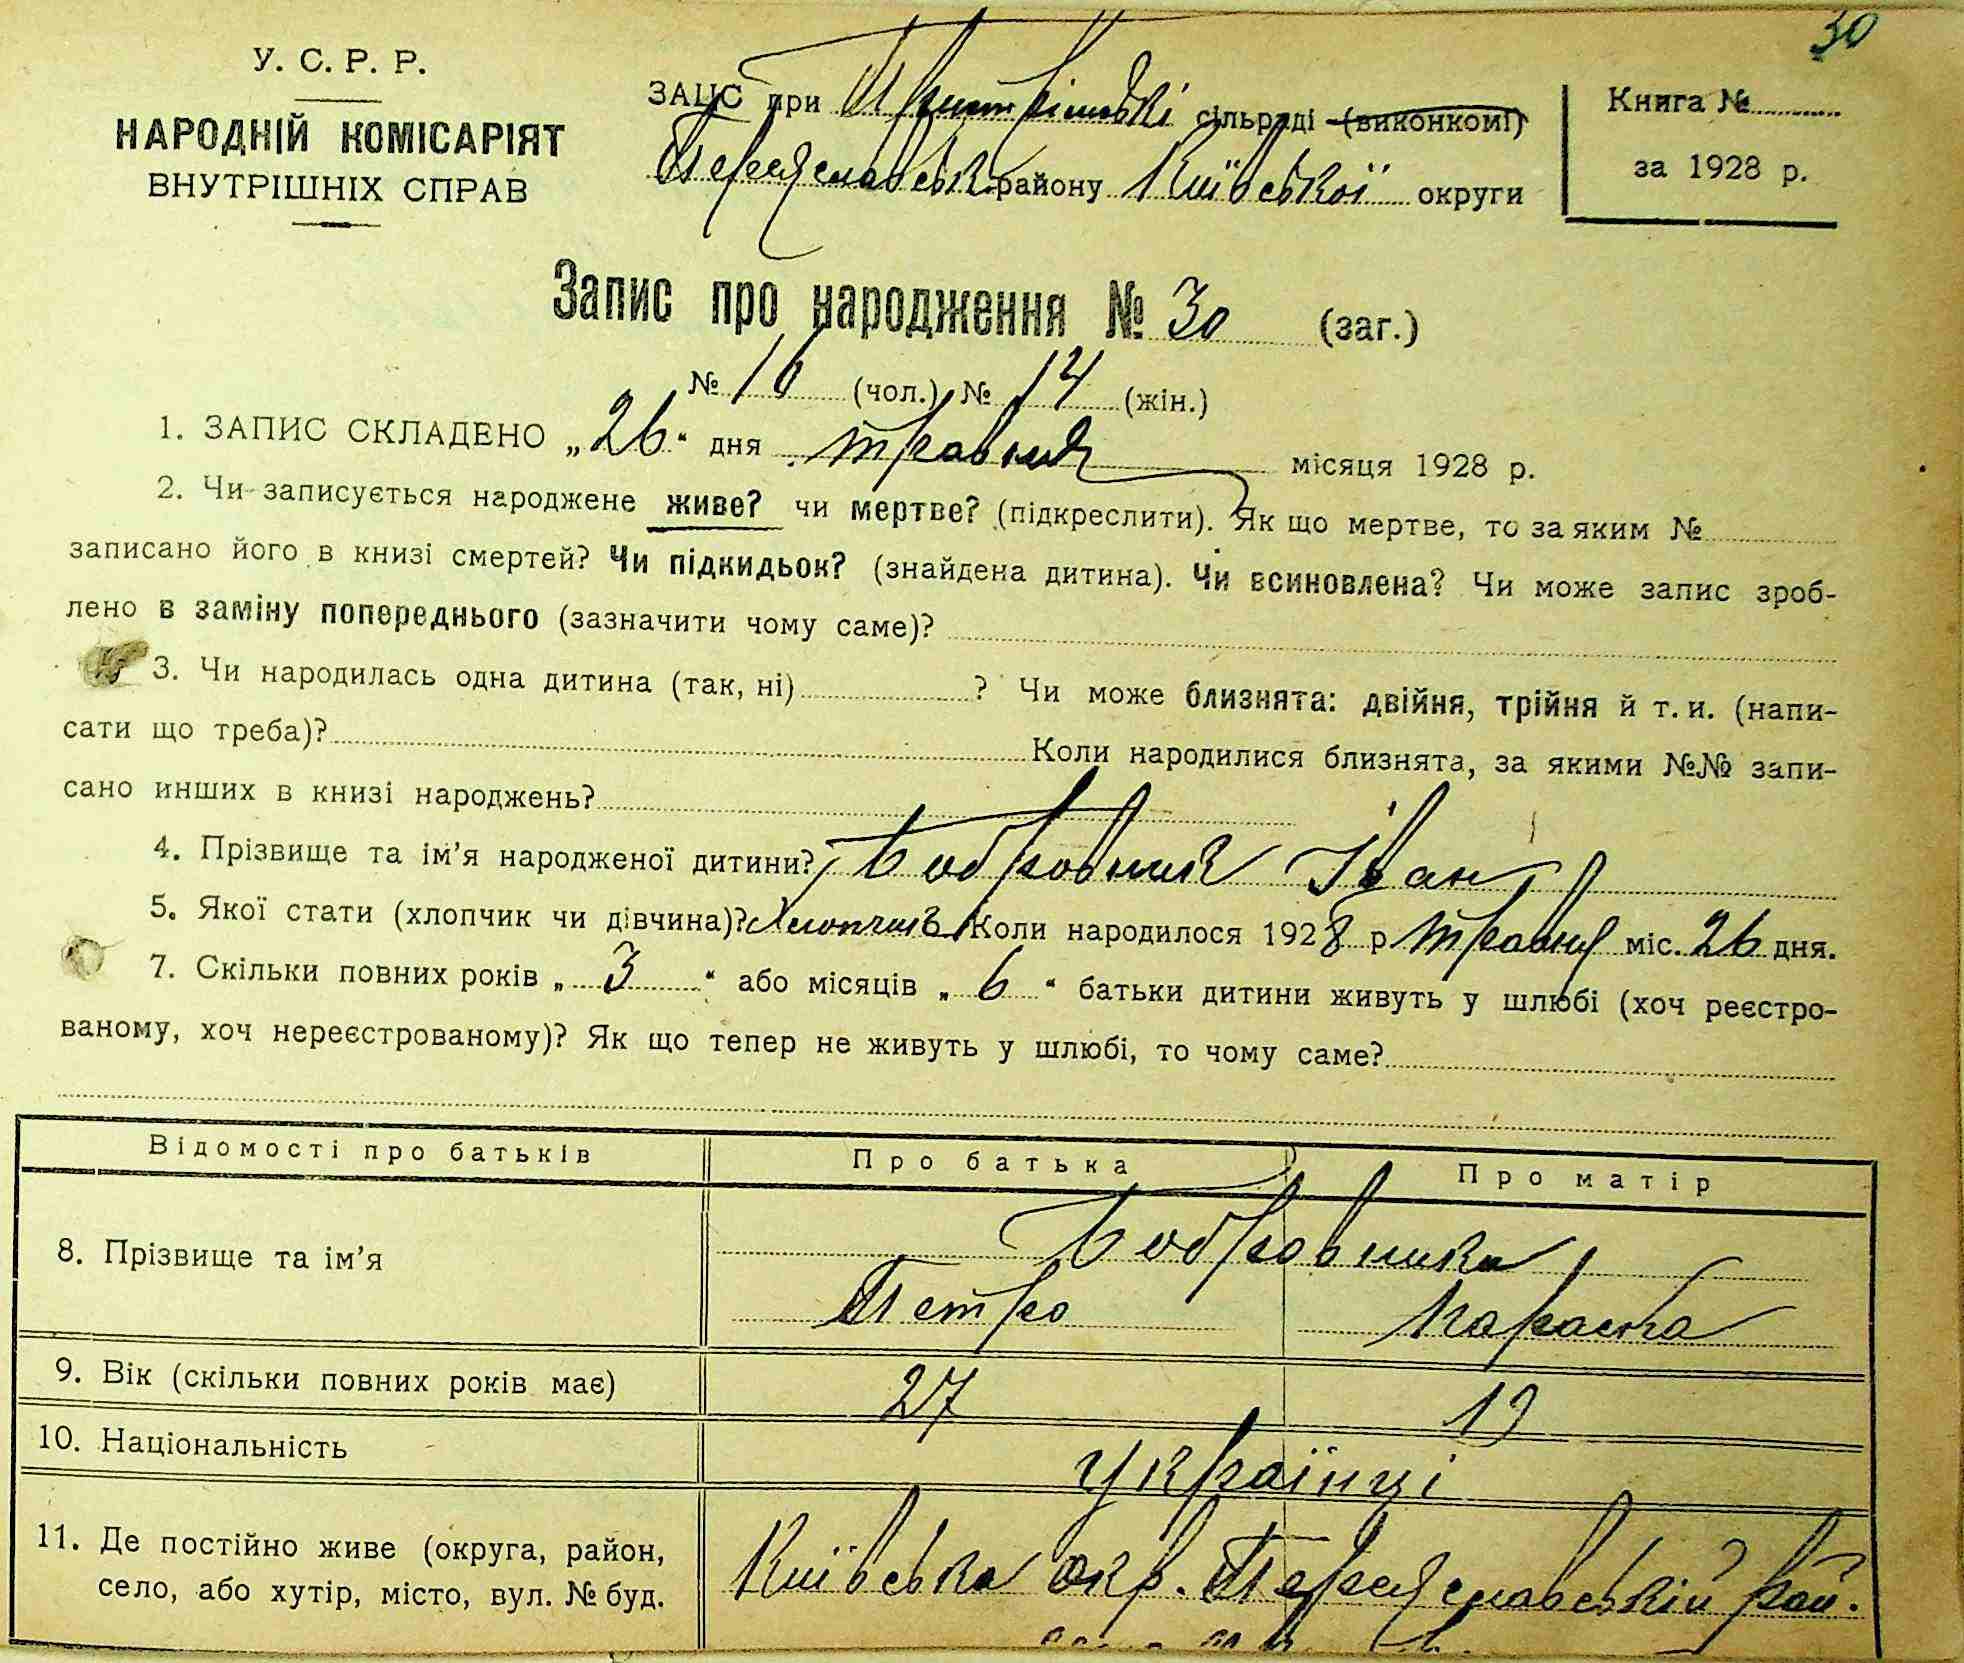 30
У. С. Р. Р.
НАРОДНІЙ КОМІСАРІЯТ
ВНУТРІШНІХ СПРАВ
ЗАЦС при сільраді (виконкомі)
Переяславськ. району Київської округи
Книга №
за 1928 р.
Запис про народження № 30 (заг.)
№ 16 (чол.) № 14 (жін.)
1. ЗАПИС СКЛАДЕНО „26“ дня травня місяця 1928 р.
2. Чи записується народжене живе? чи мертве? (підкреслити). Як що мертве, то за яким №
записано його в книзі смертей? Чи підкидьок? (знайдена дитина). Чи всиновлена? Чи може запис зроб-
лено в заміну попереднього (зазначити чому саме)?
3. Чи народилась одна дитина (так, ні) ? Чи може близнята: двійня, трійня й т. и. (напи-
сати що треба)? Коли народилися близнята, за якими №№ запи-
сано инших в книзі народжень?
4. Прізвище та ім’я народженої дитини? Бобровник Іван
5. Якої стати (хлопчик чи дівчина)? Хлопчик Коли народилося 1928 р травня міс. 26 дня.
7. Скільки повних років „ 3 “ або місяців „ 6 “ батьки дитини живуть у шлюбі (хоч реєстро-
ваному, хоч нереєстрованому)? Як що тепер не живуть у шлюбі, то чому саме?
Відомості про батьків Про батька Про матір
8. Прізвище та ім’я Бобровника
Петро Параска
9. Вік (скільки повних років має) 27 19
10. Національність Українці
11. Де постійно живе (округа, район, Київська окр. Переяславській рай.
село, або хутір, місто, вул. № буд.